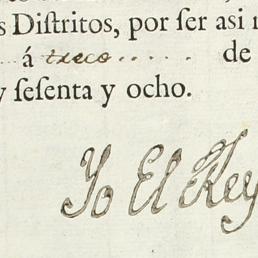 s Diſtritos, por ſer asi
á trece de
y ſeſenta y ocho.
Yo El Rey